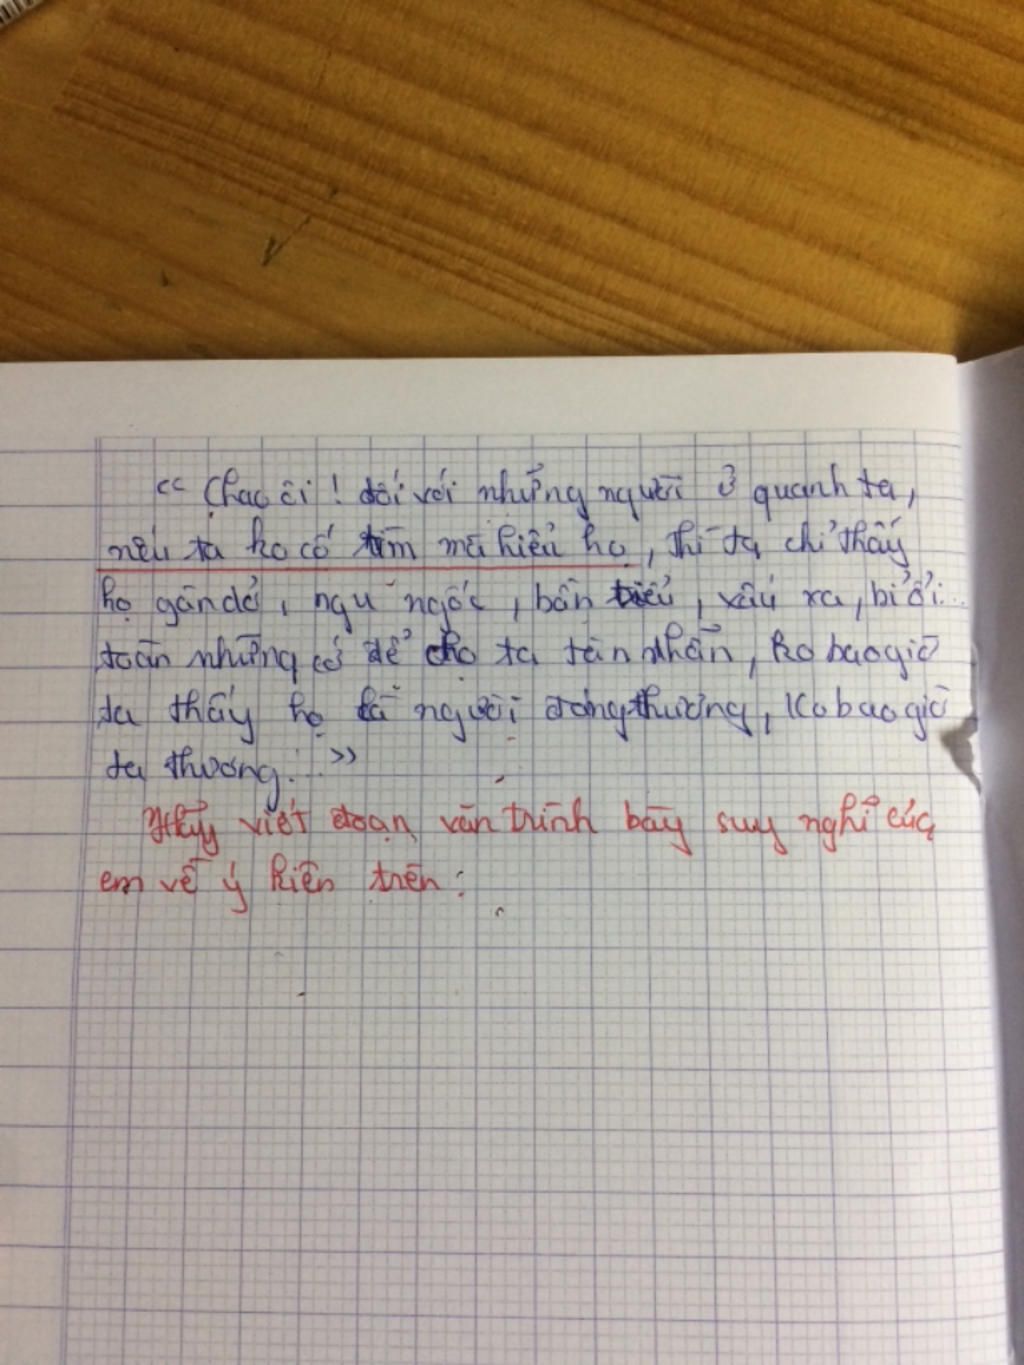 << Chao ôi ! đối với những người ở quanh ta,
nếu ta ko cố tìm mà hiểu họ, thì ta chỉ thấy
họ gàn dở, ngu ngốc, bần tiểu, xấu xa, bỉ ổi...
toàn những cớ để cho ta tàn nhẫn, ko bao giờ
ta thấy họ là người đáng thương, ko bao giờ
ta thương... >>
Hãy viết đoạn văn trình bày suy nghĩ của
em về ý kiến trên :